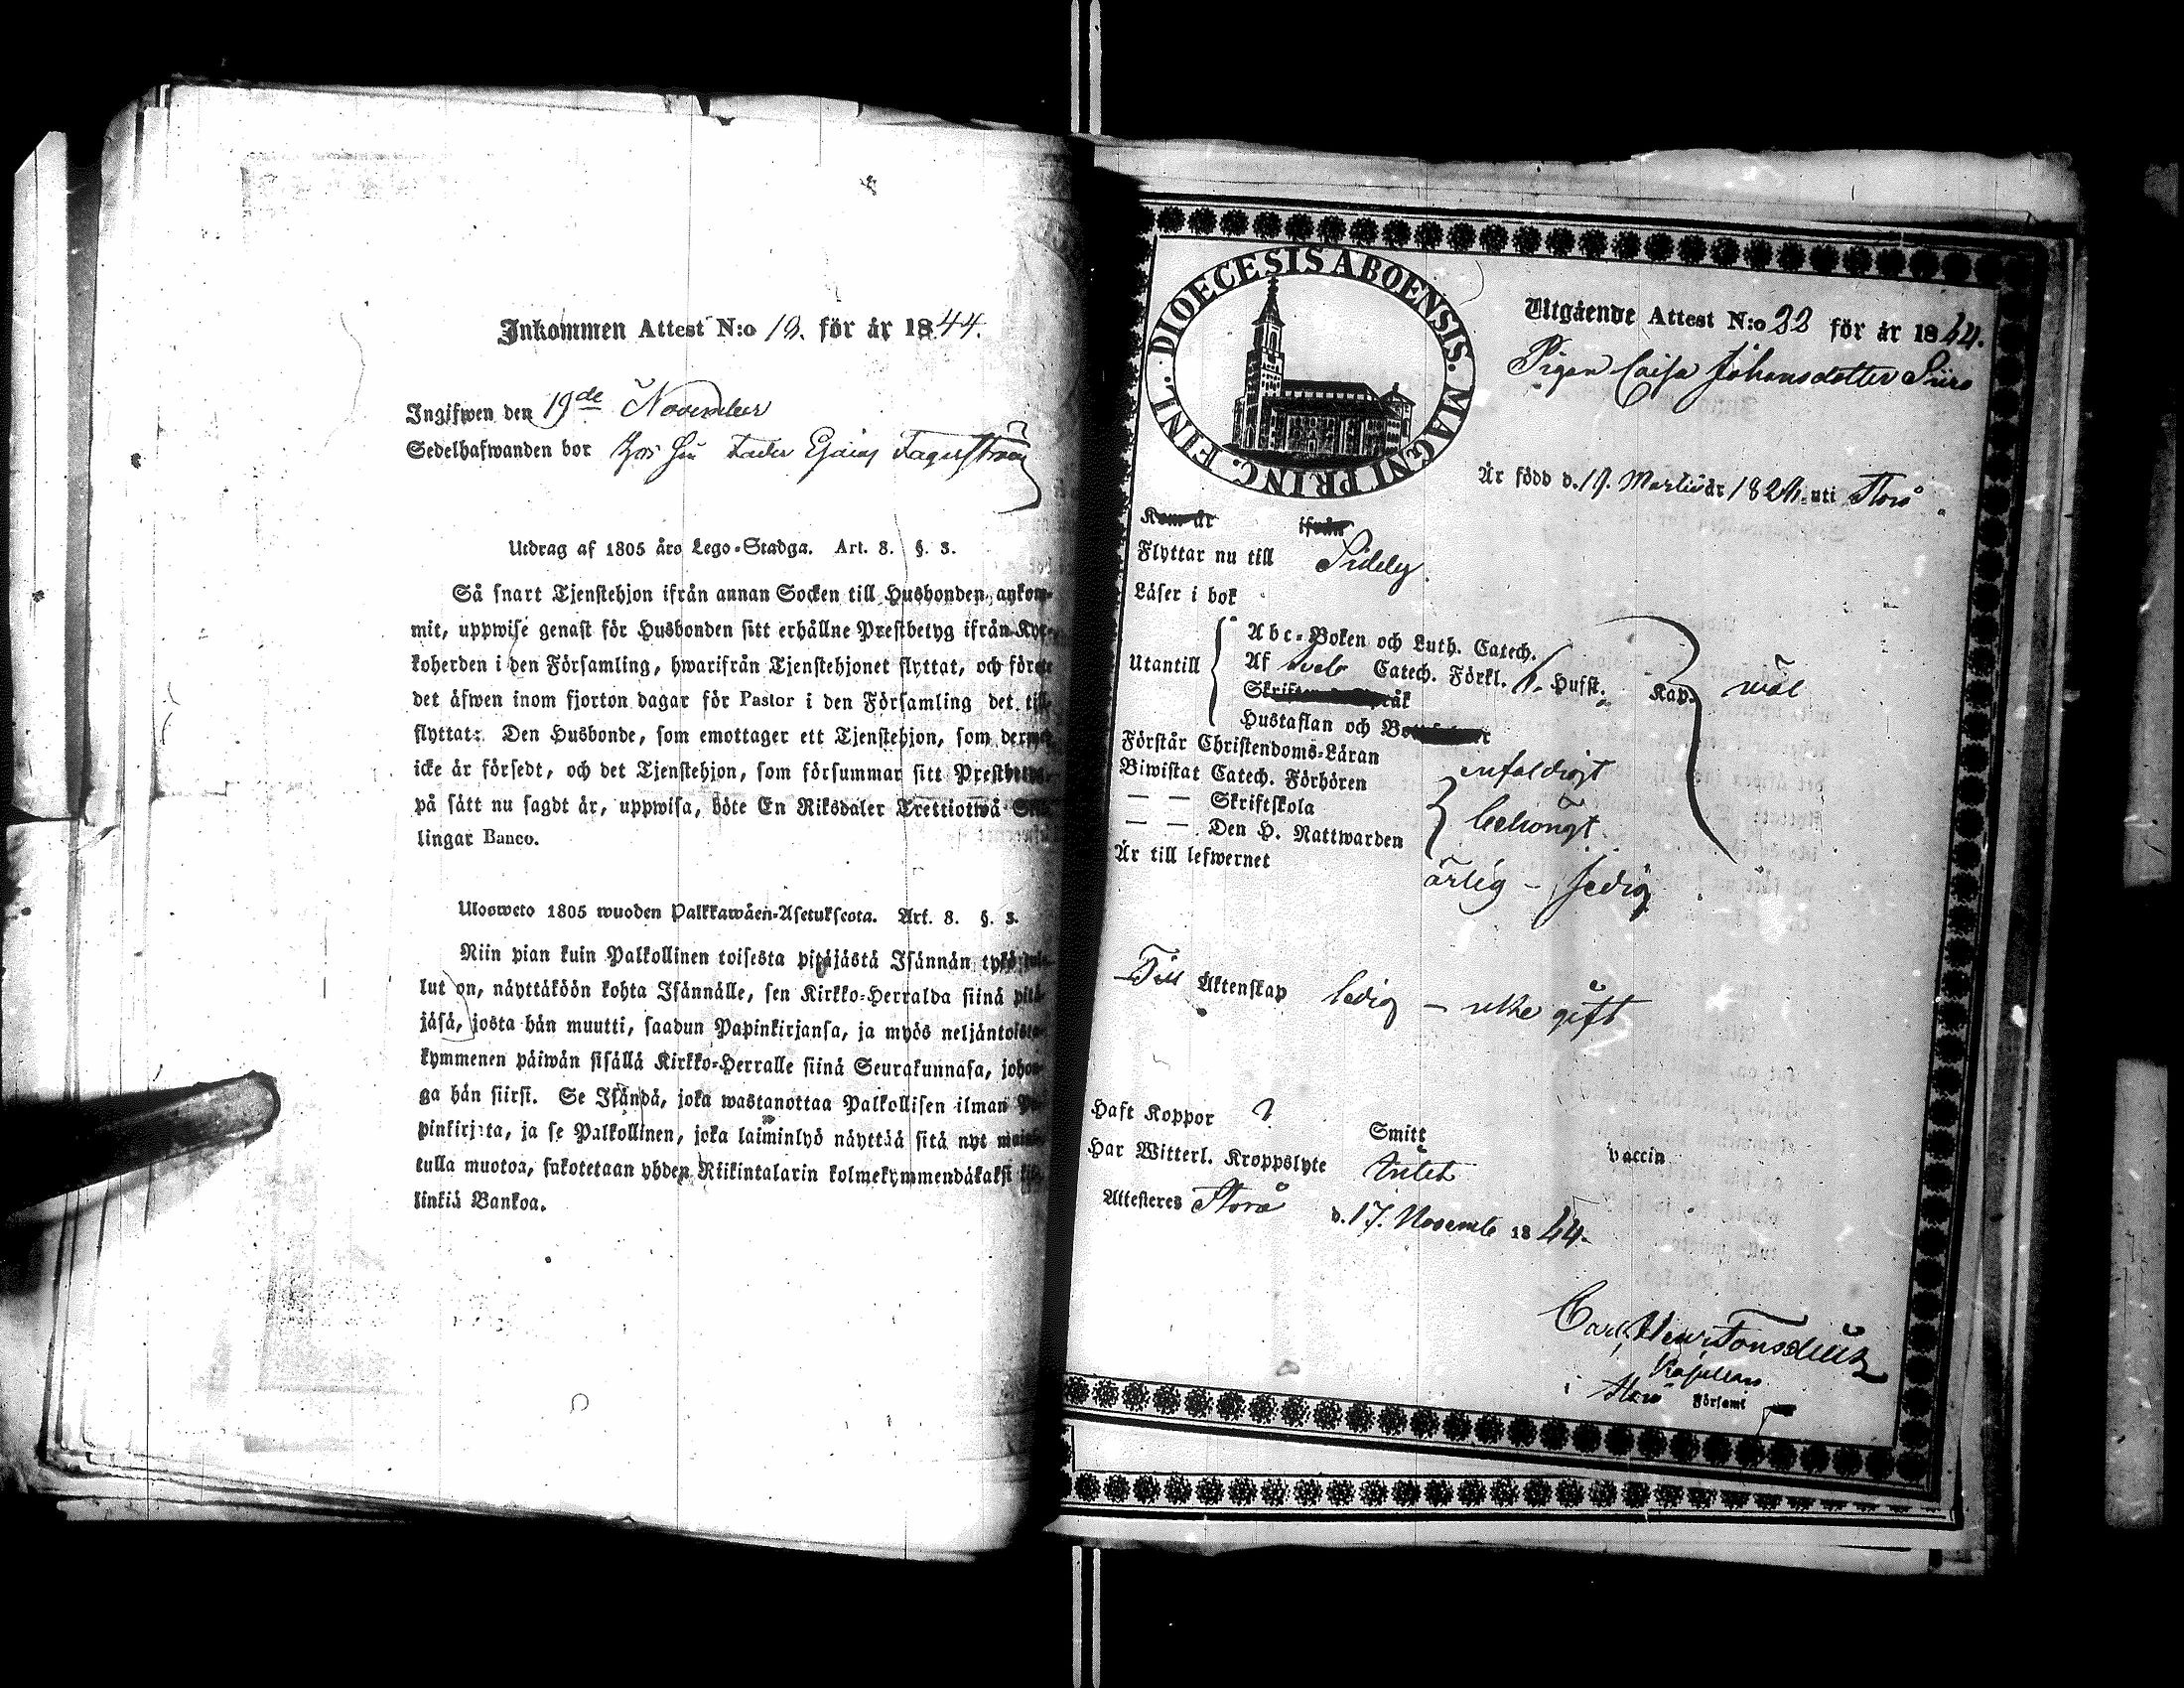 Inkommen Attest N:o 13. för år 1844.
Ingifwen den 19de November
Sedelhafwanden bor hos sin Fader Esaias Fagerström
Utdrag af 1805 års Lego-Stadga. Art. 8. §. 3.
Så snart Tjenstehjon ifrån annan Socken till Husbonden ankom-
mit, uppwise genast för Husbonden sitt erhållne Prestbetyg ifrån Kyr-
koherden i den Församling, hwarifrån Tjenstehjonet flyttat, och förete
det äfwen inom fjorton dagar för Pastor i den Församling det till-
flyttat: Den Husbonde, som emottager ett Tjenstehjon, som dermed
icke är försedt, och det Tjenstehjon, som försummar sitt Prestbetyg,
på sätt nu sagdt är, uppwisa, böte En Riksdaler Trettiotwå Skil-
lingar Banco.
Ulosweto 1805 wuoden Palkkawäen-Asetuksesta. Art. 8. §. 3.
Niin pian kuin Palkollinen toisesta pitäjästä Isännän tykö tul-
lut on, näyttäköön kohta Isännälle, sen Kirkko-Herralda siinä pitä-
jäsä, josta hän muutti, saadun Papinkirjansa, ja myös neljäntoista-
kymmenen päiwän sisällä Kirkko-Herralle siinä Seurakunnasa, johon-
ga hän siirsi. Se Isändä, joka wastanottaa Palkollisen ilman Pa-
pinkirjata, ja se Palkollinen, joka laiminlyö näyttää sitä nyt maini-
tulla muotoa, sakotetaan yhden Riikintalarin kolmekymmendäkaksi kil-
linkiä Bankoa.
DIOECESIS ABOENSIS. MAGNI PRINC. FINL.
Utgående Attest N:o 22 för år 1844.
Pigan Caisa Johansdotter
Är född d. 19. Martii år 182 uti Storå
Kom år ifrån
Flyttar nu till Sideby.
Läser i bok
Utantill
Abc-Boken och Luth. Catech.
Af Catech. Förkl. Hufst. Kap. wäl
Hustaflan och
Förstår Christendoms-Läran enfaldigt
Biwistat Catech. Förhören
— — Skriftskola behörigt
— — Den H. Nattwarden
Är till lefwernet ärlig – sedig
Till Äktenskap ledig – icke gift
Haft Koppor ? Smitt vaccin
Har Witterl. Kroppslyte Intet
Attesteres Storå d. 17. Novemb 1844.
Carl Henr Tonsdeuth
Kapellan
i Storå Församl